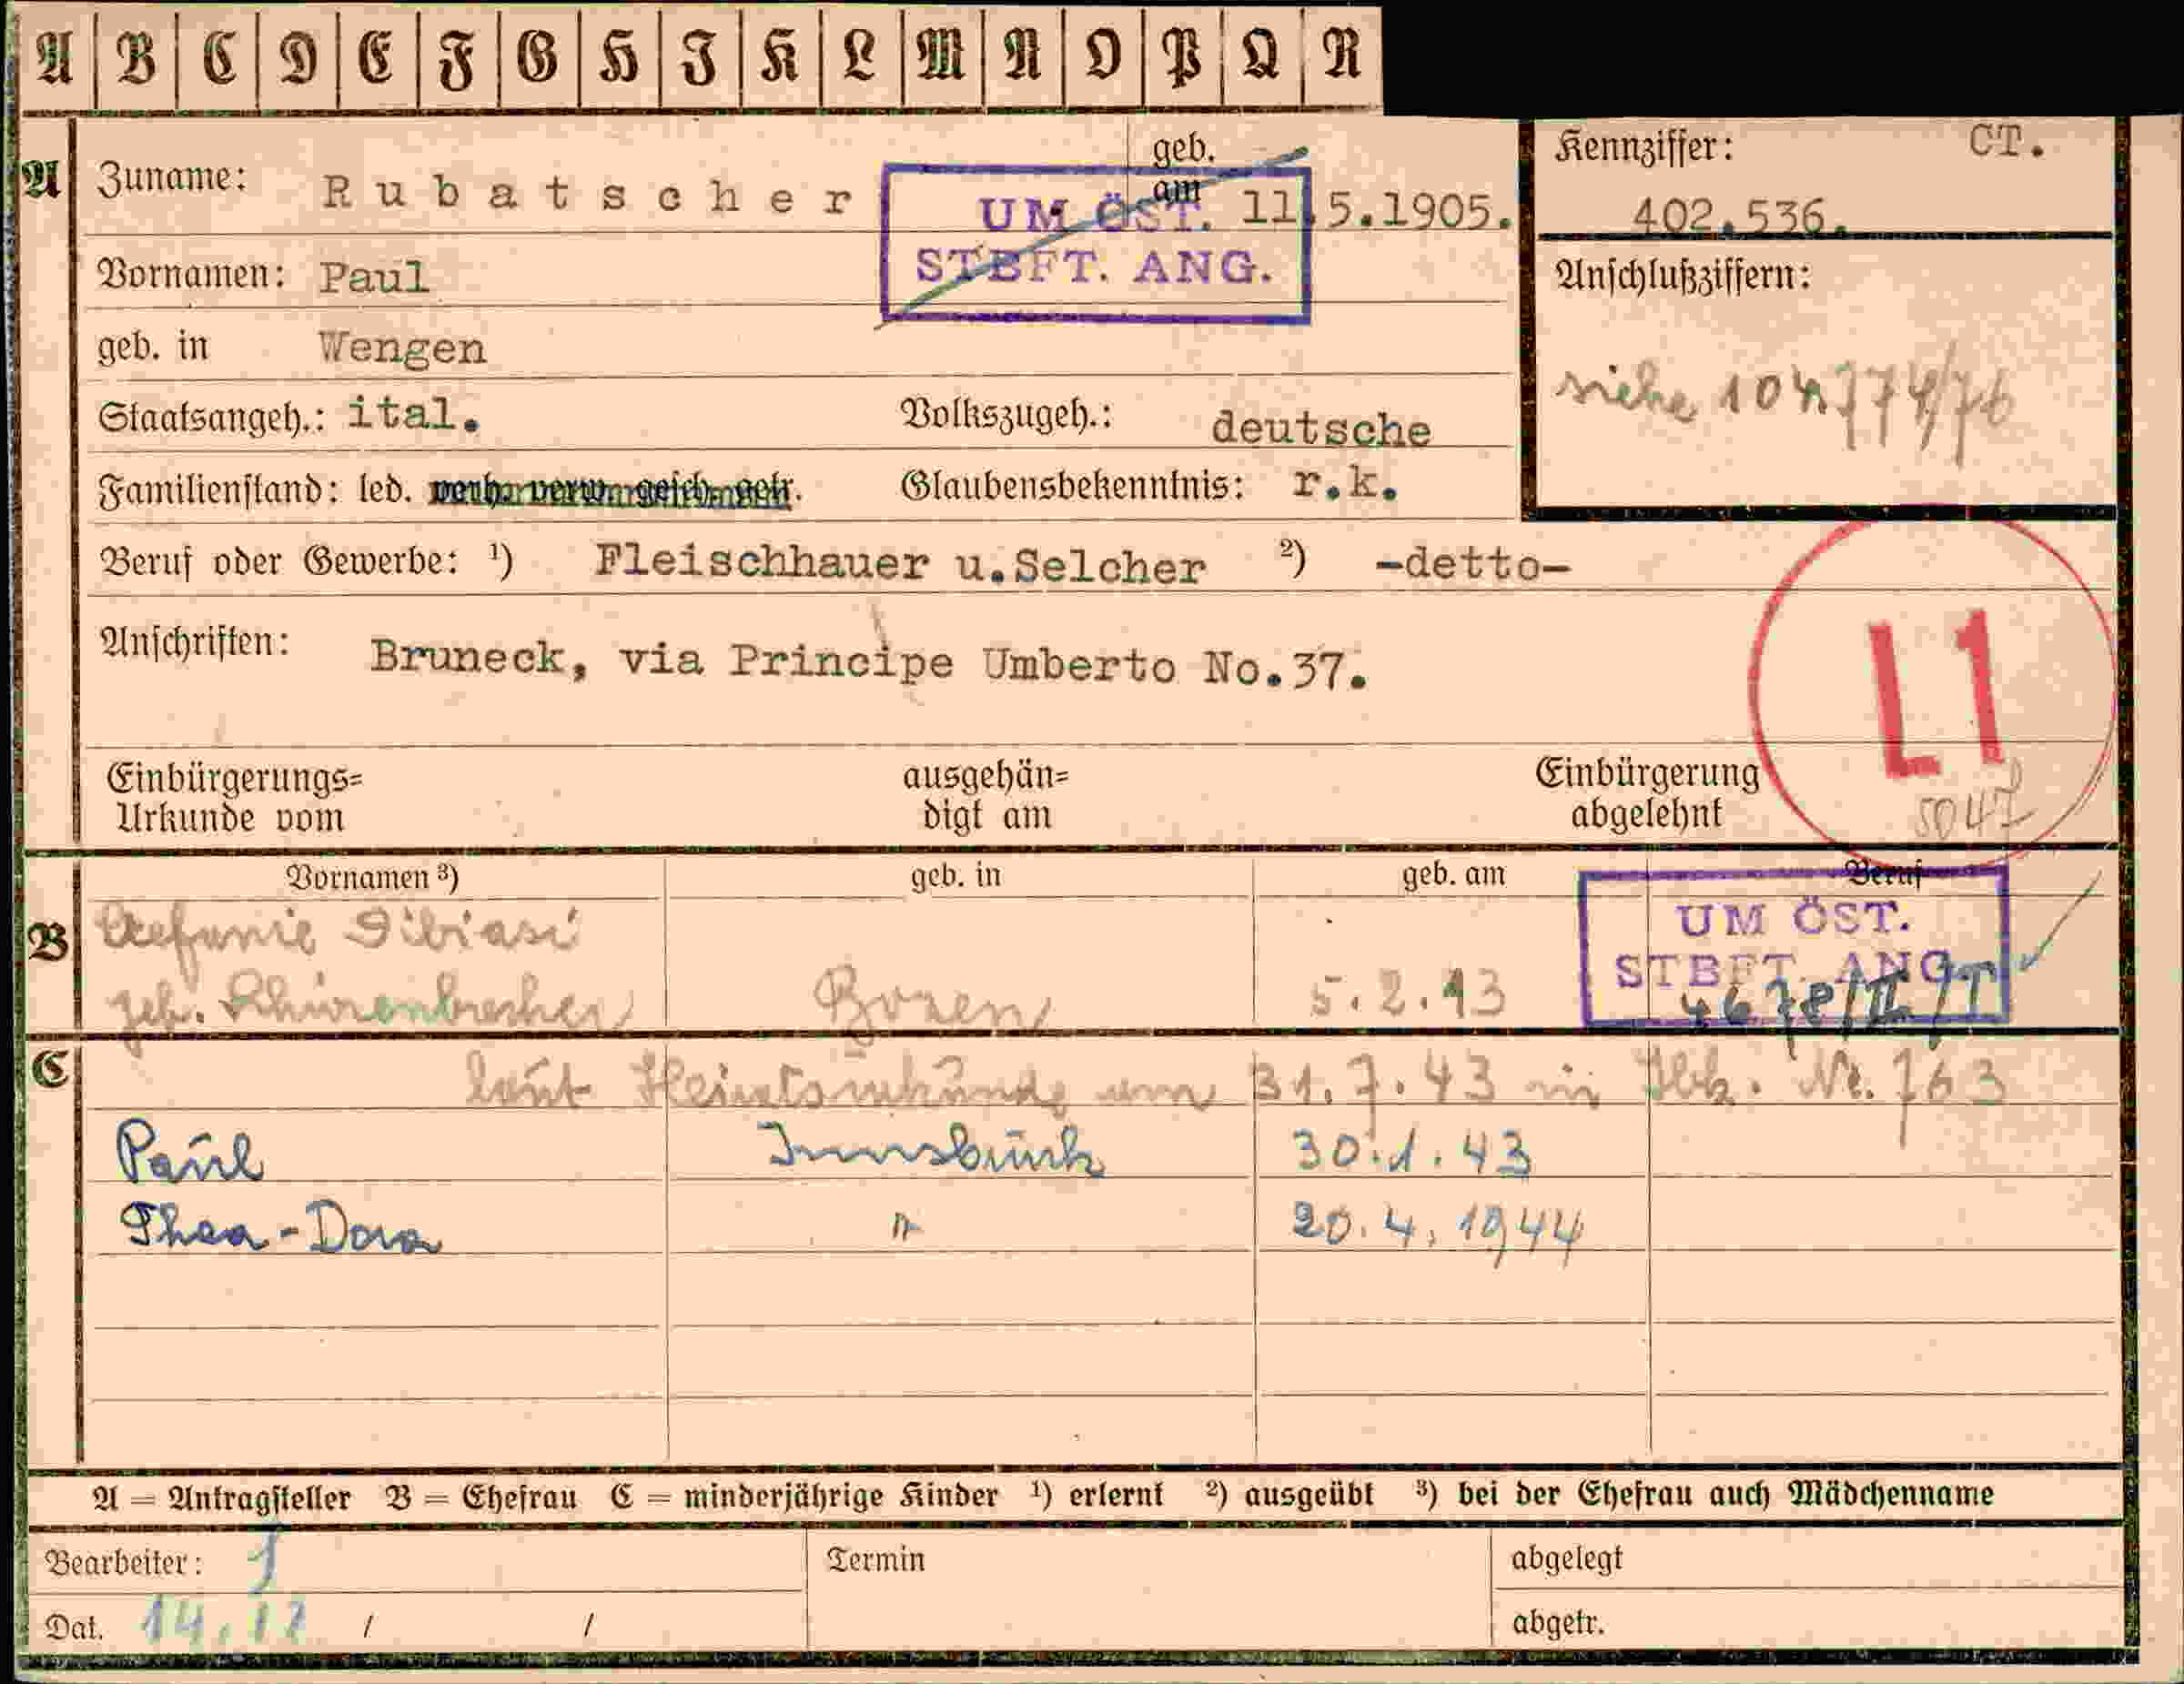 A B C D E F G H I K L M N O P Q R
A Zuname: Rubatscher geb. am 11.5.1905.
UM ÖST.
STBFT. ANG.
Kennziffer: CT.
402.536.
Vornamen: Paul
Anschlußziffern:
geb. in Wengen
siehe 104774/76
Staatsangeh.: ital. Volkszugeh.: deutsche
Familienstand: led. verh. verw. gesch. getr. Glaubensbekenntnis: r.k.
Beruf oder Gewerbe: ¹) Fleischhauer u.Selcher ²) -detto-
Anschriften: Bruneck, via Principe Umberto No.37.
L1
Einbürgerungs= ausgehän= Einbürgerung
Urkunde vom digt am abgelehnt 5047
Vornamen ³) geb. in geb. am Beruf
B Stefanie Dibiasi
UM ÖST.
STBFT. ANG.
geb. Bozen 5.2.13 4678/II/T
C laut Heiratsurkunde vom 31.7.43 in Ibk. Nr. 763
Paul Innsbruck 30.1.43
Thea-Dora " 20.4.1944
A = Antragsteller B = Ehefrau C = minderjährige Kinder ¹) erlernt ²) ausgeübt ³) bei der Ehefrau auch Mädchenname
Bearbeiter: Termin abgelegt
Dat. 14.12 / / abgetr.